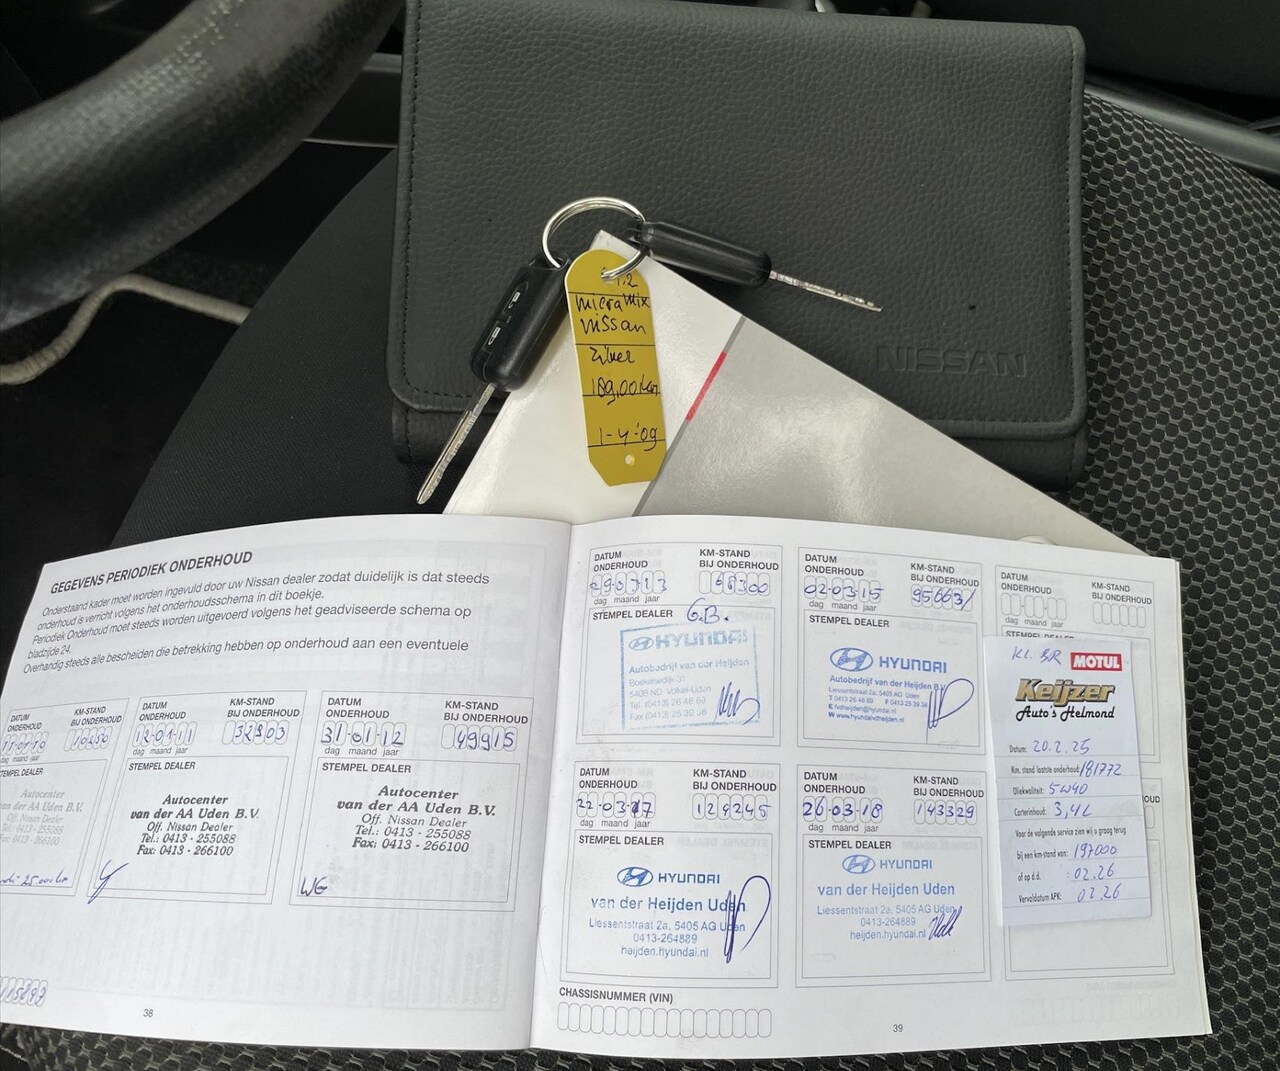 NISSAN
1.2
micra mix
Nissan
Zilver
189,00 km
1-4-'09
GEGEVENS PERIODIEK ONDERHOUD
Onderstaand kader moet worden ingevuld door uw Nissan dealer zodat duidelijk is dat steeds
onderhoud is verricht volgens het onderhoudsschema in dit boekje.
Periodiek Onderhoud moet steeds worden uitgevoerd volgens het geadviseerde schema op
bladzijde 24.
Overhandig steeds alle bescheiden die betrekking hebben op onderhoud aan een eventuele
DATUM
ONDERHOUD
KM-STAND
BIJ ONDERHOUD
10450
dag maand jaar
STEMPEL DEALER
Autocenter
van der AA Uden B.V.
Off. Nissan Dealer
Tel.: 0413 - 255088
Fax: 0413 - 266100
DATUM
ONDERHOUD
KM-STAND
BIJ ONDERHOUD
12-01-11
32803
dag maand jaar
STEMPEL DEALER
Autocenter
van der AA Uden B.V.
Off. Nissan Dealer
Tel.: 0413 - 255088
Fax: 0413 - 266100
DATUM
ONDERHOUD
KM-STAND
BIJ ONDERHOUD
31-01-12
49915
dag maand jaar
STEMPEL DEALER
Autocenter
van der AA Uden B.V.
Off. Nissan Dealer
Tel.: 0413 - 255088
Fax: 0413 - 266100
WG
38
DATUM
ONDERHOUD
KM-STAND
BIJ ONDERHOUD
290713
68300
dag maand jaar
STEMPEL DEALER
G.B.
HYUNDAI
Autobedrijf van der Heijden
Boekelsedijk 31
5408 ND Volkel-Uden
Tel. (0413) 26 48 89
Fax (0413) 25 39 38
DATUM
ONDERHOUD
KM-STAND
BIJ ONDERHOUD
02-03-15
95663
dag maand jaar
STEMPEL DEALER
HYUNDAI
Autobedrijf van der Heijden B.V.
Liessentstraat 2a, 5405 AG Uden
T 0413 26 48 89 F 0413 25 39 38
E fvdheijden@hyundai.nl
W www.hyundvdheijden.nl
DATUM
ONDERHOUD
KM-STAND
BIJ ONDERHOUD
dag maand jaar
DATUM
ONDERHOUD
KM-STAND
BIJ ONDERHOUD
22-03-17
124245
dag maand jaar
STEMPEL DEALER
HYUNDAI
van der Heijden Uden
Liessentstraat 2a, 5405 AG Uden
0413-264889
heijden.hyundai.nl
DATUM
ONDERHOUD
KM-STAND
BIJ ONDERHOUD
26-03-18
143329
dag maand jaar
STEMPEL DEALER
HYUNDAI
van der Heijden Uden
Liessentstraat 2a, 5405 AG Uden
0413-264889
heijden.hyundai.nl
CHASSISNUMMER (VIN)
39
KL. BR
MOTUL
Keijzer
Auto's Helmond
Datum: 20.2.25
Km. stand laatste onderhoud: 181772
Oliekwaliteit: 5W40
Carterinhoud: 3,4L
Voor de volgende service zien wij u graag terug
bij een km-stand van: 197000
of op d.d. : 02.26
Vervaldatum APK: 02.26